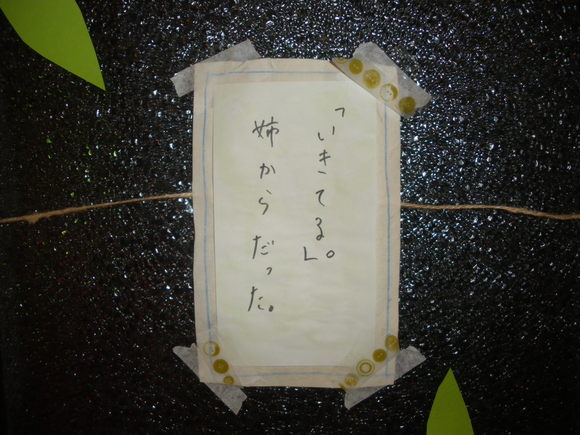 「いきてる。」
姉からだった。